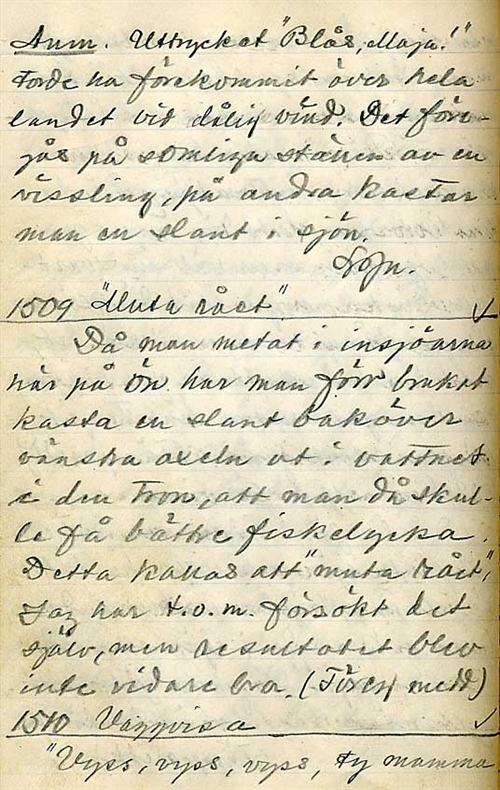 Anm. Uttrycket "Blås, Maja!"
Torde ha förekommit över hela
landet vid dålig vind. Det före-
gås på somliga ställen av en
vissling, på andra kastar
man en slant i sjön.
1509 "Muta rået"
Då man metat i insjöarna
här på ön har man förr brukat
kasta en slant baköver
vänstra axeln ut i vattnet
i den tron, att man då skul-
le få bättre fiskelycka.
Detta kallas att "muta rået",
Jag har t.o.m. försökt det
själv, men resultatet blev
inte vidare bra. (Förest medd)
1510 Vaggvisa
"Vyss, vyss, vyss, ty mamma